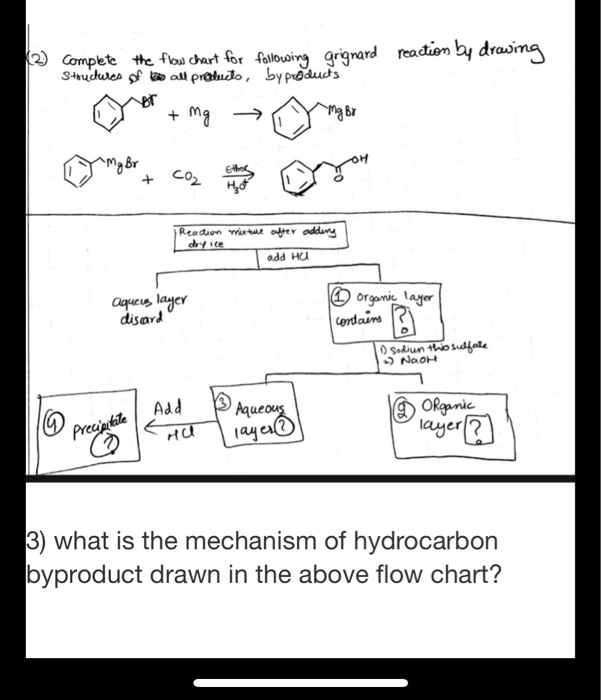 (2) Complete the flow chart for following grignard reaction by drawing
Structures of all products, by products
Br
+ Mg → MgBr
MgBr + CO2 Ether H3O+ OH O
Reaction mixture after adding
dry ice
add HCl
aqueus layer
disard
① Organic layer
contains ?
1) Sodiun thiosulfate
2) NaOH
④ Precipitate
?
Add
HCl
③ Aqueous
layer ?
② ORganic
layer ?
3) what is the mechanism of hydrocarbon
byproduct drawn in the above flow chart?